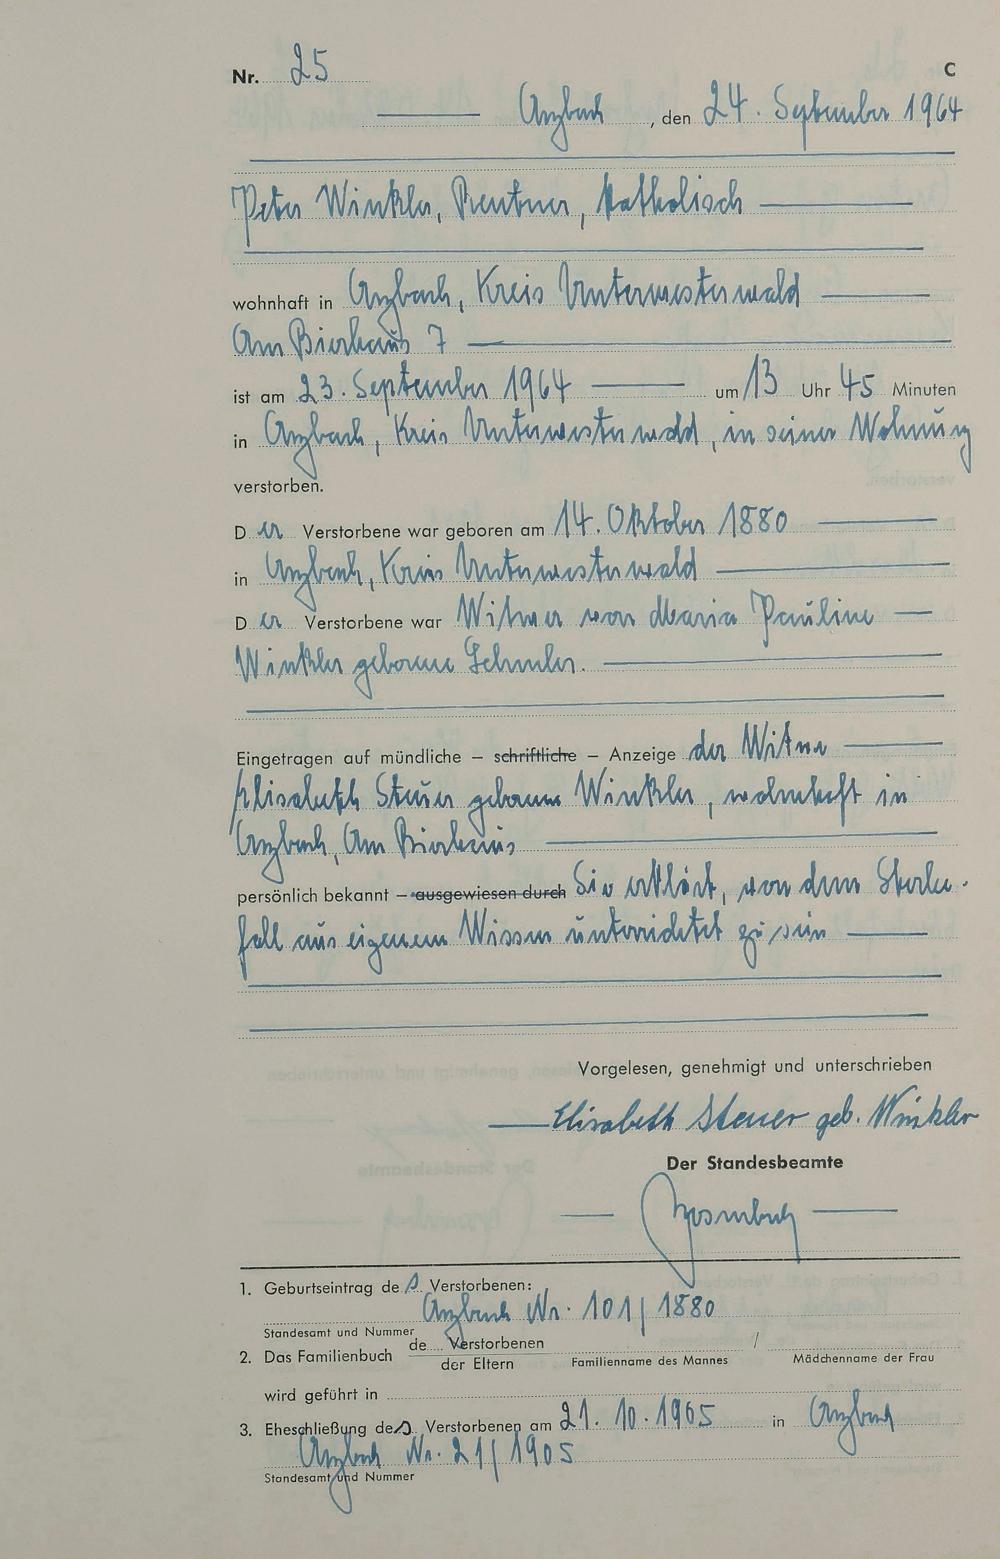 Nr. 25
C
Arzbach, den 24. September 1964
Peter Winkler, Rentner, katholisch
wohnhaft in Arzbach, Kreis Unterwesterwald
Am Bierhaus 7
ist am 23. September 1964 um 13 Uhr 45 Minuten
in Arzbach, Kreis Unterwesterwald, in seiner Wohnung
verstorben.
Der Verstorbene war geboren am 14. Oktober 1880
in Arzbach, Kreis Unterwesterwald
Der Verstorbene war Witwer von Maria Pauline
Winkler geborene
Eingetragen auf mündliche – schriftliche – Anzeige der Witwe
Elisabeth Steuer geborene Winkler, wohnhaft in
Arzbach, Am Bierhaus
persönlich bekannt – ausgewiesen durch Sie erklärt, von dem Sterbe-
fall aus eigenem Wissen unterrichtet zu sein
Vorgelesen, genehmigt und unterschrieben
Elisabeth Steuer geb. Winkler
Der Standesbeamte
1. Geburtseintrag des Verstorbenen:
Arzbach Nr. 101/1880
Standesamt und Nummer
2. Das Familienbuch de Verstorbenen /
der Eltern Familienname des Mannes Mädchenname der Frau
wird geführt in
3. Eheschließung des Verstorbenen am 21. 10. 1905 in Arzbach
Arzbach Nr. 21/1905
Standesamt und Nummer